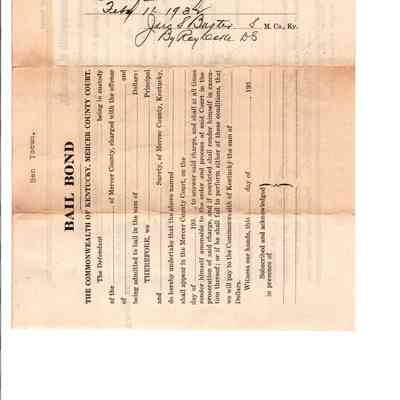 Feby 11 1932
Jas S Baxter S M. Co., Ky.
By Roy Cole DS
Ben Toewm,
BAIL BOND
THE COMMONWEALTH OF KENTUCKY, MERCER COUNTY COURT.
The Defendant being in custody
of the of Mercer County, charged with the offense
of and
being admitted to bail in the sum of Dollars:
THEREFORE, we Principal
and Surety, of Mercer County, Kentucky,
do hereby undertake that the above named
shall appear in the Mercer County Court, on the
day of 193 , to answer said charge, and shall at all times
render himself amenable to the order and process of said Court in the
prosecution of said charge, and if convicted shall render himself in execu-
tion thereof; or if he shall fail to perform either of these conditions, that
we will pay to the Commonwealth of Kentucky the sum of
Dollars.
Witness our hands, this day of 193
Subscribed and acknowledged
in presence of